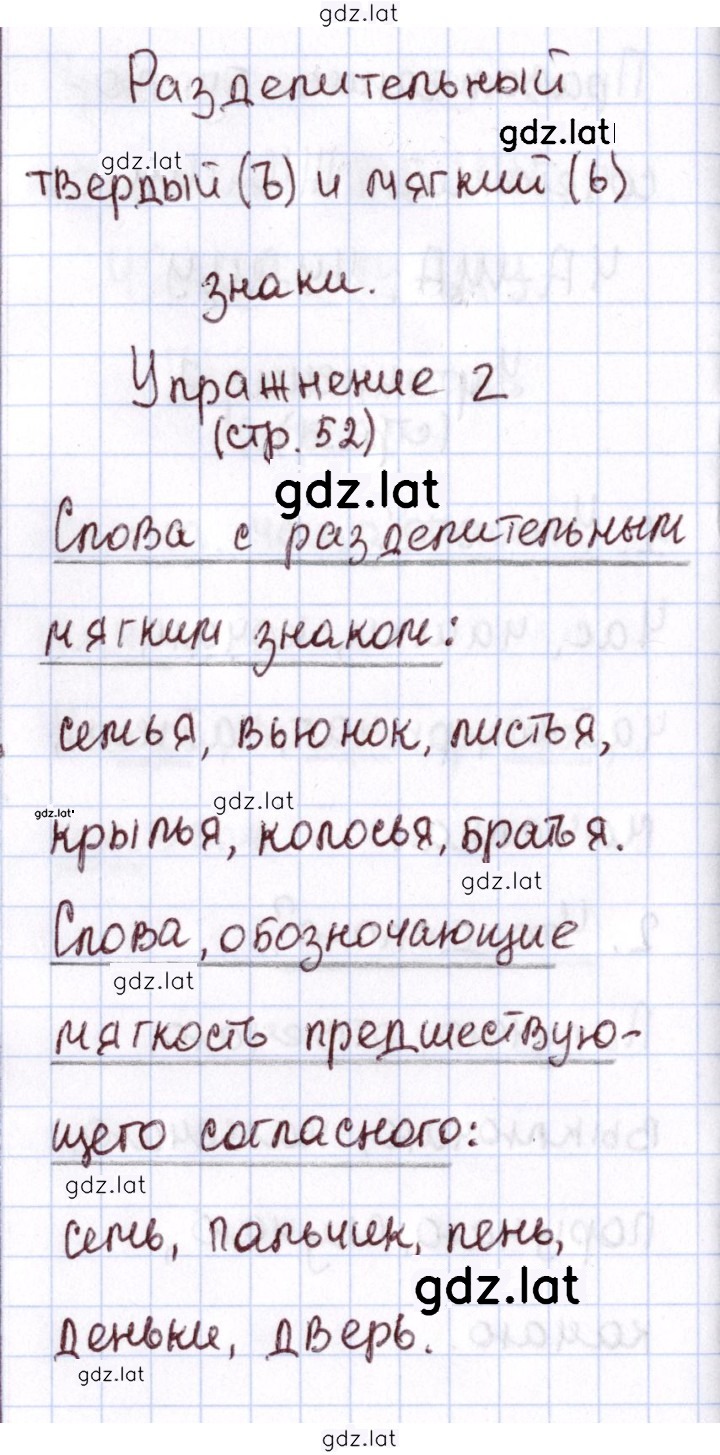 gdz.lat
Разделительный
gdz.lat
gdz.lat
твердый (ъ) и мягкий (ь)
знаки.
Упражнение 2
(стр. 52)
gdz.lat
Слова с разделительным
мягким знаком:
семья, вьюнок, листья,
gdz.lat
gdz.lat
крылья, колосья, братья.
gdz.lat
Слова, обозночающие
gdz.lat
мягкость предшествую-
щего согласного:
gdz.lat
семь, пальчик, пень,
gdz.lat
деньки, дверь.
gdz.lat
gdz.lat